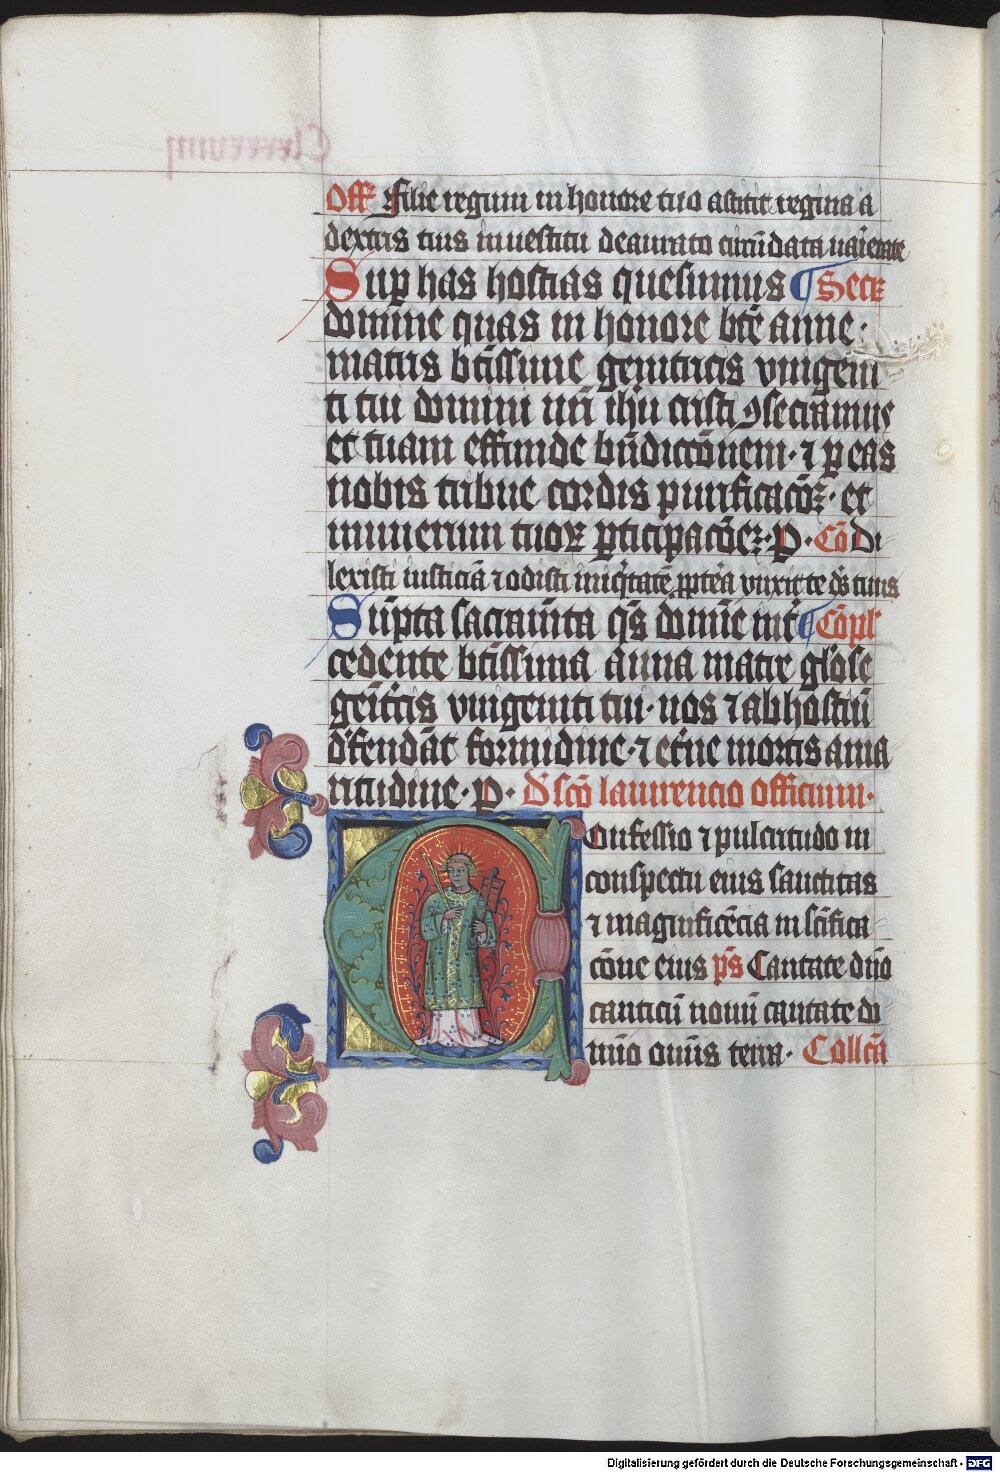 Off Filie regum in honore tuo astitit regina a
dextris tuis in uestitu deaurato circūdata uarietate
Sup has hostias quesumus Secr
domine quas in honore bte anne·
matris btissime genitricis vnigeni
ti tui domini nri ihu cristi ꝯsecramus
et tuam effunde bndictōnem· ⁊ p eas
nobis tribue cordis purificacōꝫ· et
munerum tuoꝝ pticipacōeꝫ· P· Cō Di
lexisti iusticiā ⁊ odisti iniqitatē pptea vnxit te ds tuus
Sūpta sacramta qs domīe int Cōpl
cedente btissima anna matre glose
geitcis vnigeniti tui· nos ⁊ ab hostiū
dfendāt formidine· ⁊ etne mortis ama
ritudine· P· D sco laurencio officium·
Confessio ⁊ pulcritudo in
conspectu eius sanctitas
⁊ magnificēcia in scifica
cōne eius ps Cantate dno
canticū nouū cantate do
mino omnis terra· Collca
Digitalisierung gefördert durch die Deutsche Forschungsgemeinschaft - DFG